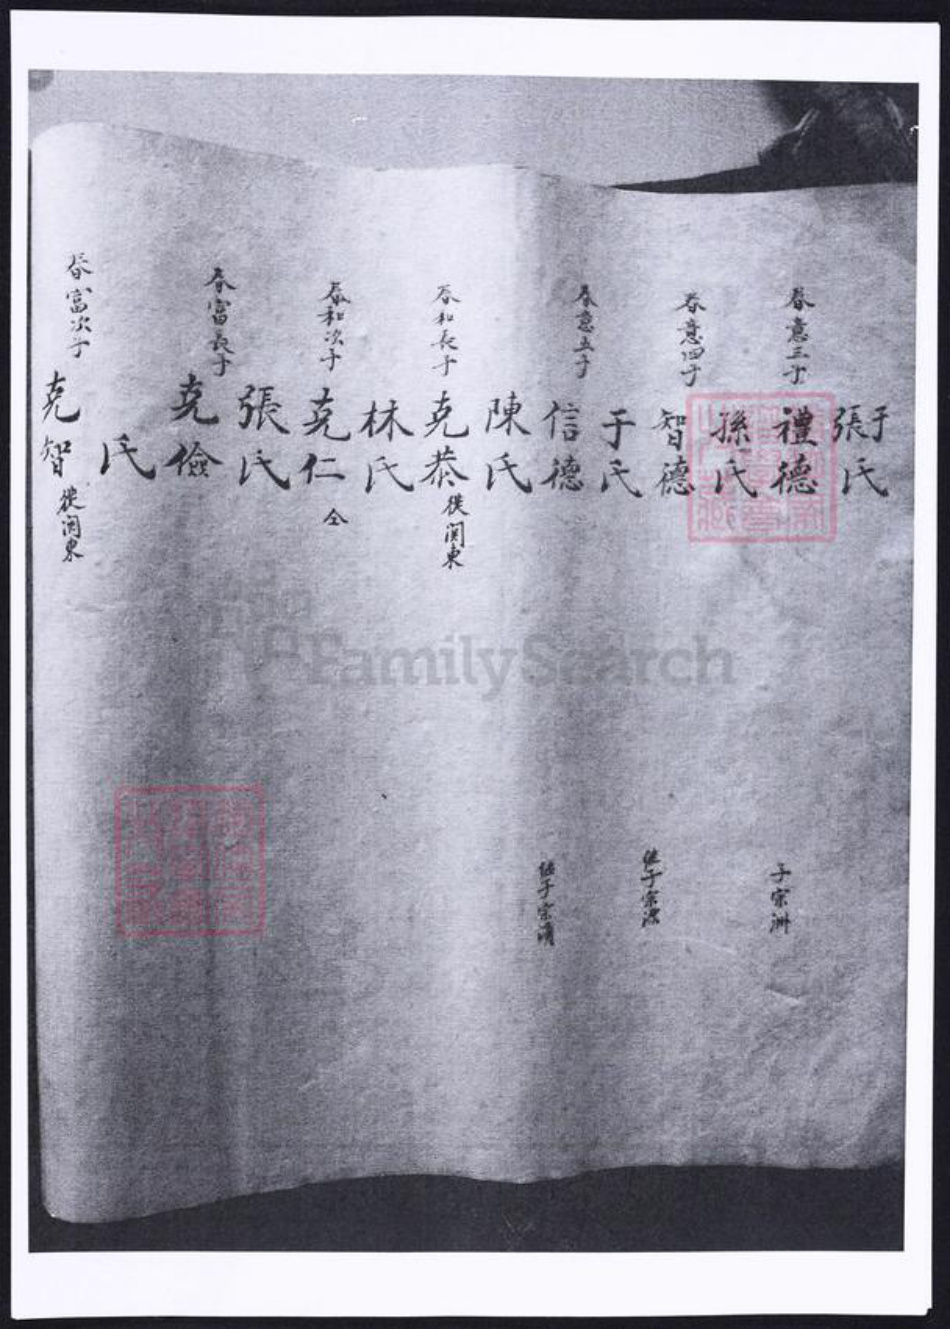 張于氏
春意三子
禮德
子宗洲
孫氏
春意四子
智德
于氏
春意五子
信德
陳氏
春和長子
克恭
從関東
林氏
春和次子
克仁
仝
張氏
春富長子
克儉
氏
春富次子
克智
從関東
FamilySearch